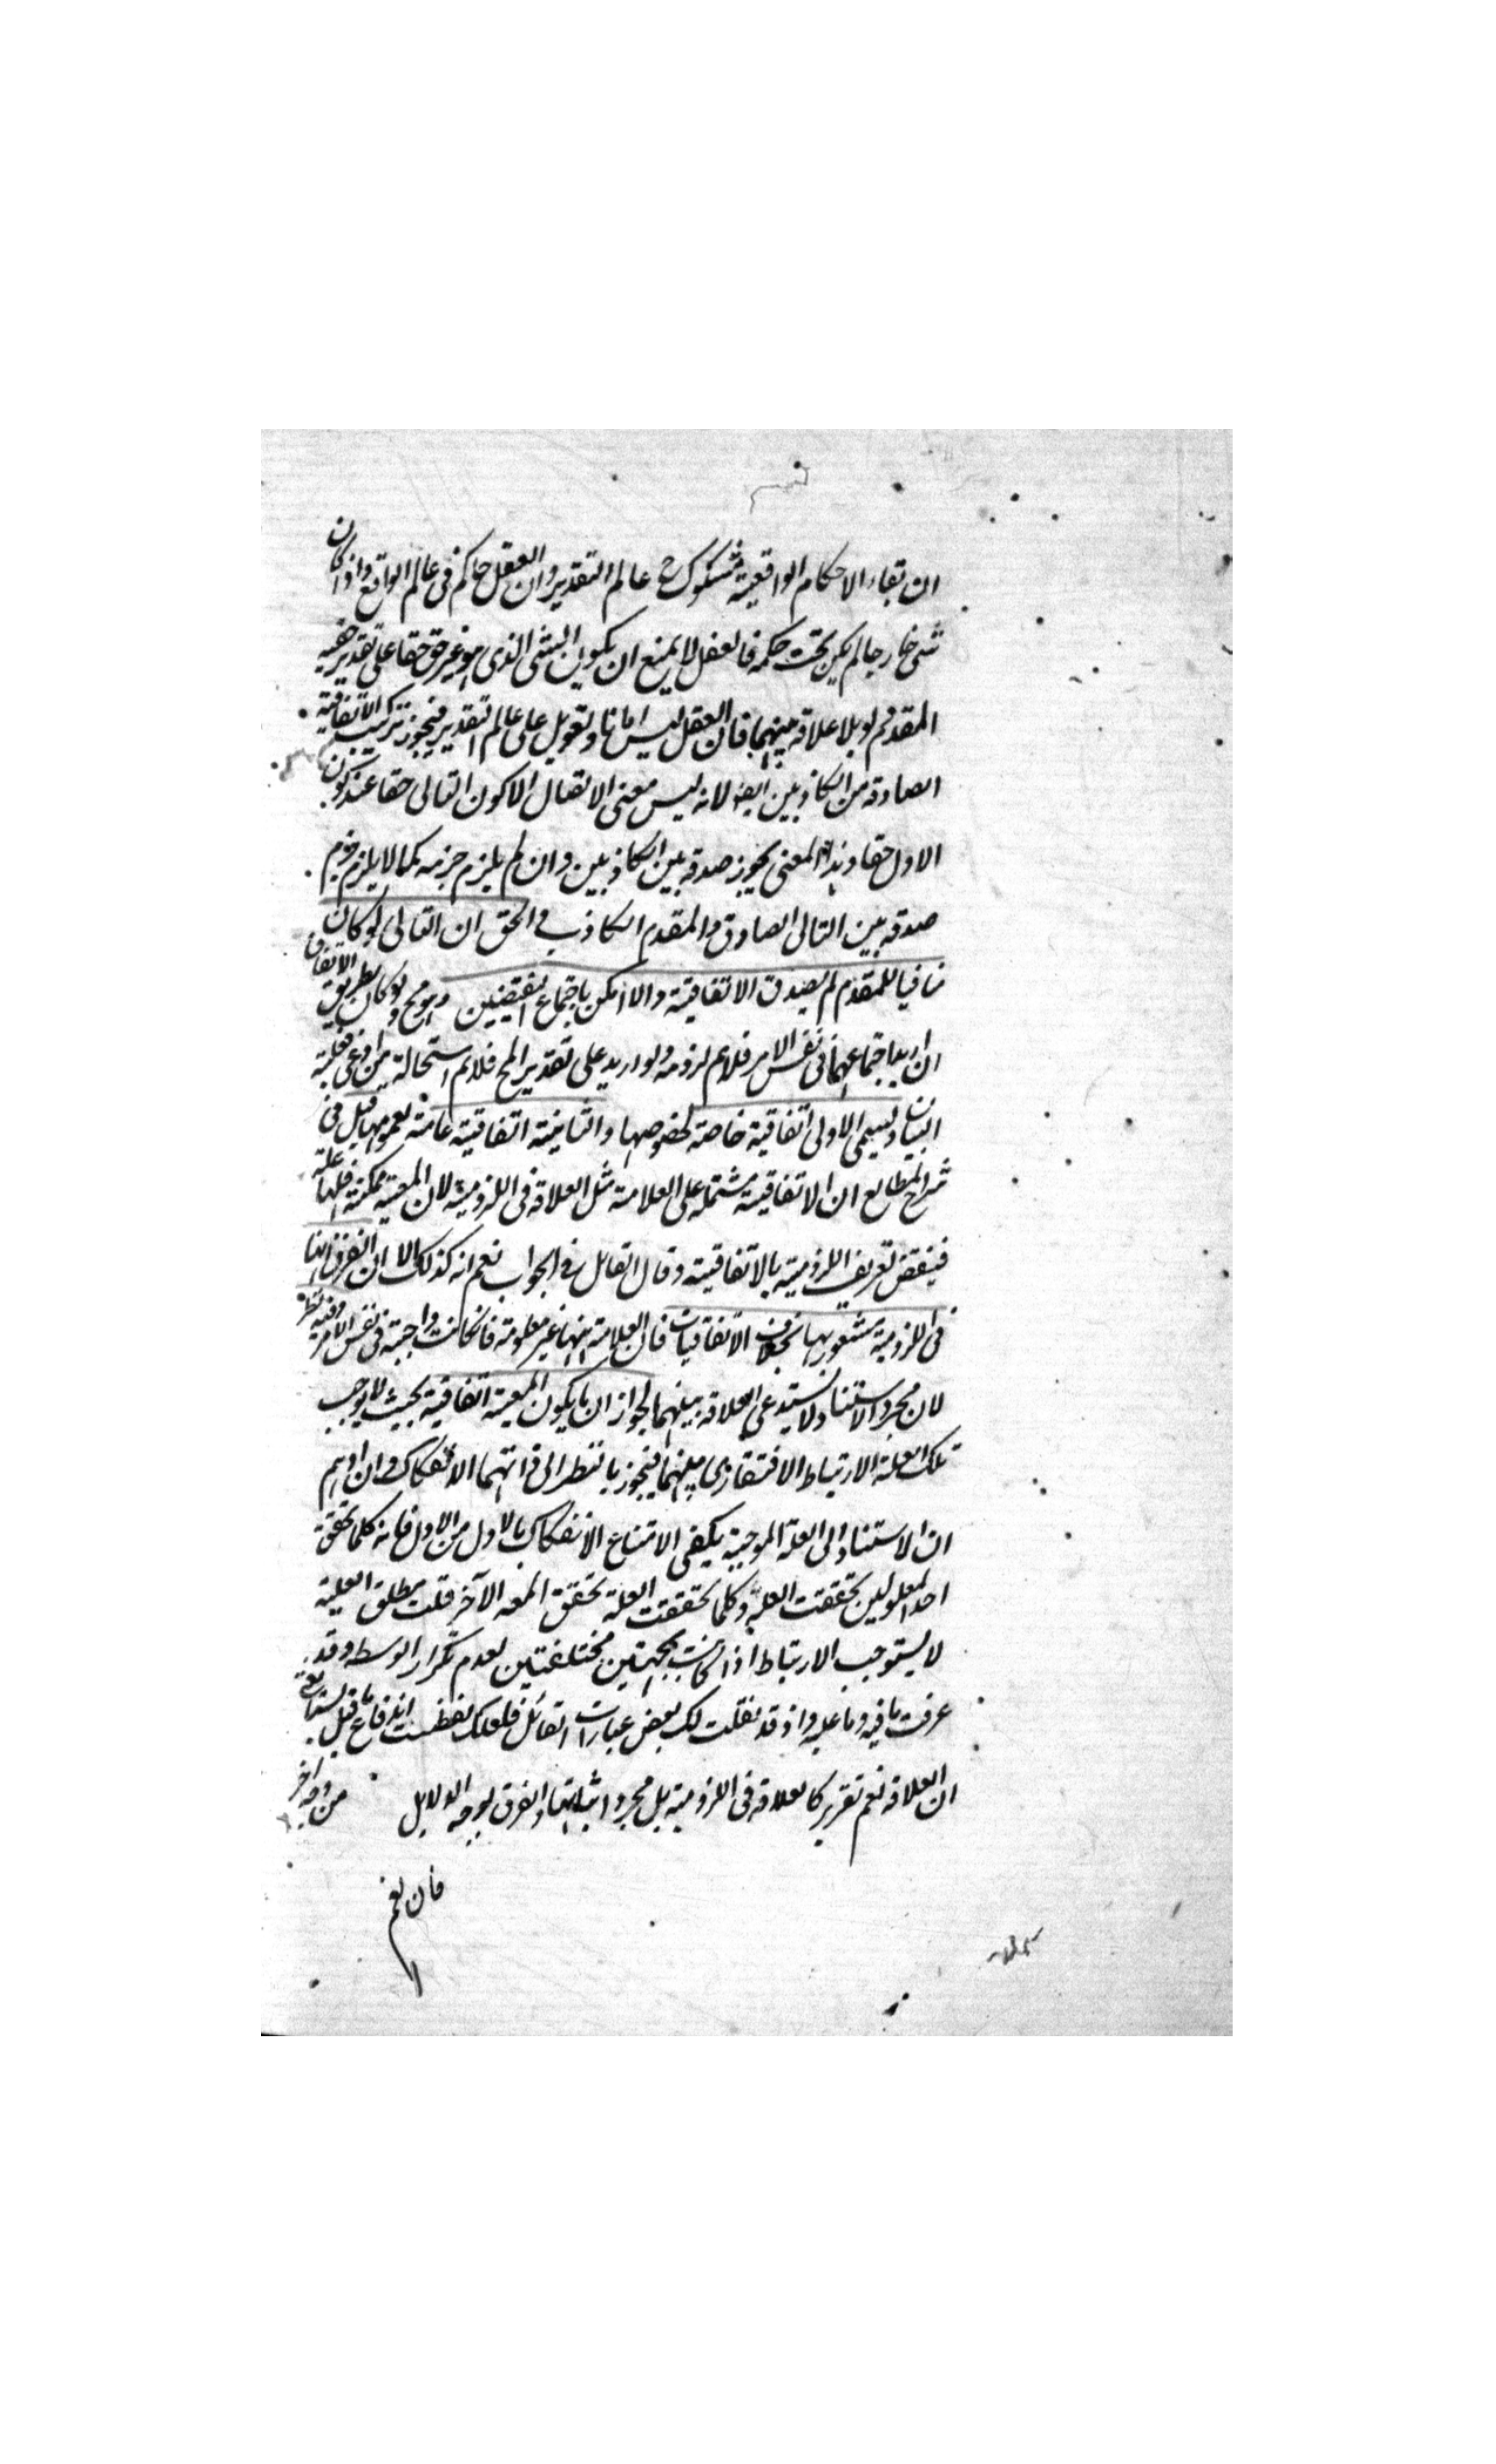 ان بقاء الاحكام الواقعية مشكوك في عالم التقدير وان العقل حاكم في عالم الواقع واذا كان
شئ خارجا لم يكن تحت حكمه فالعقل لا يمنع ان يكون الشئ الذي هو غير حق حقا على تقدير حقية
المقدم ولو بلا علاقة بينهما فان العقل ليس له تعويل على عالم التقدير فيجوز تركيب الاتفاقية
الصادقة من الكاذبين ايضا لانه ليس معنى الاتصال الا كون التالي حقا عند كون
الاول حقا وهذا المعنى يجوز صدقه بين الكاذبين وان لم يلزم جزمه كما لا يلزم جزم
صدقه بين التالي الصادق والمقدم الكاذب والحق ان التالي لو كان
منافيا للمقدم لم يصدق الاتفاقية والا امكن اجتماع النقيضين وهو مح ولو كان بطريق الاتفاق
ان اريد اجتماعهما في نفس الامر فلا نم لزومه ولو اريد على تقدير المح فلا نم استحالة من ادعى فعليه
البيان وليسمى الاولى اتفاقية خاصة لخصوصها والثانية اتفاقية عامة لعمومها قيل في
شرح المطالع ان الاتفاقية مشتملة على العلاقة مثل العلاقة في اللزومية لان المعية ممكنة فلها علة
فينقض تعريف اللزومية بالاتفاقية وقال القائل في الجواب نعم انه كذلك الا ان الفرق انها
في اللزومية مشعور بها بخلاف الاتفاقيات فان العلاقة فيها غير معلومة فان كانت واجبة في نفس الامر وفيه نظر
لان مجرد الاستناد لا يستدعي العلاقة بينهما لجواز ان يكون المعية اتفاقية بحيث لا يوجب
تلك العلة الارتباط الافتقاري بينهما فيجوز بالنظر الى ذاتهما الانفكاك وان اوهم
ان الاستناد الى العلة الموجبة يكفي لامتناع الانفكاك بالاول من الاول فانه كلما تحقق
احد المعلولين تحققت العلة وكلما تحققت العلة تحقق المعه الآخر قلت مطلق العلية
لا يستوجب الارتباط اذا كانت بجهتين مختلفتين لعدم تكرار الوسط وقد
عرفت ما فيه وما عليه واذ قد نقلت لك بعض عبارات القائل فلعلك تفطنت اندفاع ما قيل
ان العلاقة نعم تقرير كالعلاقة في اللزومية بل مجرد اثباتها والفرق بوجه الدلايل من وجه اخر
فان نعم